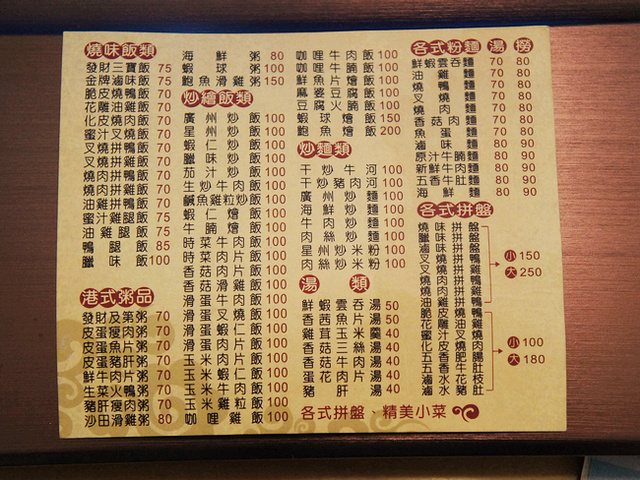 燒味飯類
發財三寶飯 75
金牌滷味飯 75
脆皮燒鴨飯 70
花雕油雞飯 70
化皮燒肉飯 70
蜜汁叉燒飯 70
叉燒拼鴨飯 70
叉燒拼雞飯 70
燒肉拼鴨飯 70
燒肉拼雞飯 70
油雞拼鴨飯 70
蜜汁雞腿飯 75
油雞腿飯 75
鴨腿飯 85
臘味飯 100
港式粥品
發財及第粥 70
皮蛋瘦肉粥 70
皮蛋魚片粥 70
皮蛋豬肝粥 70
鮮牛肉粥 70
生菜火鴨粥 70
豬肝瘦肉粥 70
沙田滑雞粥 80
海鮮粥 80
蝦球粥 100
鮑魚滑雞粥 150
炒繪飯類
廣州炒飯 100
星州炒飯 100
蝦仁炒飯 100
臘味炒飯 100
茄汁炒飯 100
生炒牛肉飯 100
鹹魚雞粒炒飯 100
蝦仁燴飯 100
牛腩燴飯 100
時菜牛肉飯 100
時菜肉片飯 100
香菇肉片飯 100
香菇滑雞飯 100
滑蛋牛肉飯 100
滑蛋叉燒飯 100
滑蛋蝦仁飯 100
滑蛋肉片飯 100
玉米肉片飯 100
玉米蝦仁飯 100
玉米牛肉飯 100
玉米雞粒飯 100
咖哩雞飯 100
咖哩牛肉飯 100
咖哩牛腩飯 100
鮮魚片燴飯 100
麻婆豆腐飯 100
豆腐火腩飯 100
蝦球燴飯 150
鮑魚燴飯 200
炒麵類
干炒牛河 100
干炒豬肉河 100
廣州炒麵 100
海鮮炒麵 100
牛肉炒麵 100
肉絲炒麵 100
星州炒米粉 100
肉絲炒米粉 100
湯類
鮮蝦雲吞湯 50
香茜魚片湯 50
香茸牛肉羹 40
香菇三絲湯 40
蛋花玉米湯 40
豬肝湯 40
各式粉麵 湯 撈
鮮蝦雲吞麵 70 80
油雞麵 70 80
燒鴨麵 70 80
叉燒麵 70 80
燒肉麵 70 80
香菇肉麵 70 80
魚蛋麵 70 80
滷味麵 80 90
原汁牛腩麵 80 90
新鮮牛肉麵 80 90
五香牛肚麵 80 90
海鮮麵 80 90
各式拼盤
燒味拼盤
臘味拼盤
滷味拼盤
叉燒拼鴨
叉燒拼雞
燒肉拼鴨
燒肉拼雞
油雞拼鴨
小 150
大 250
脆皮燒鴨
花雕油雞
蜜汁叉燒
化皮燒肉
小 100
大 180
各式拼盤、精美小菜